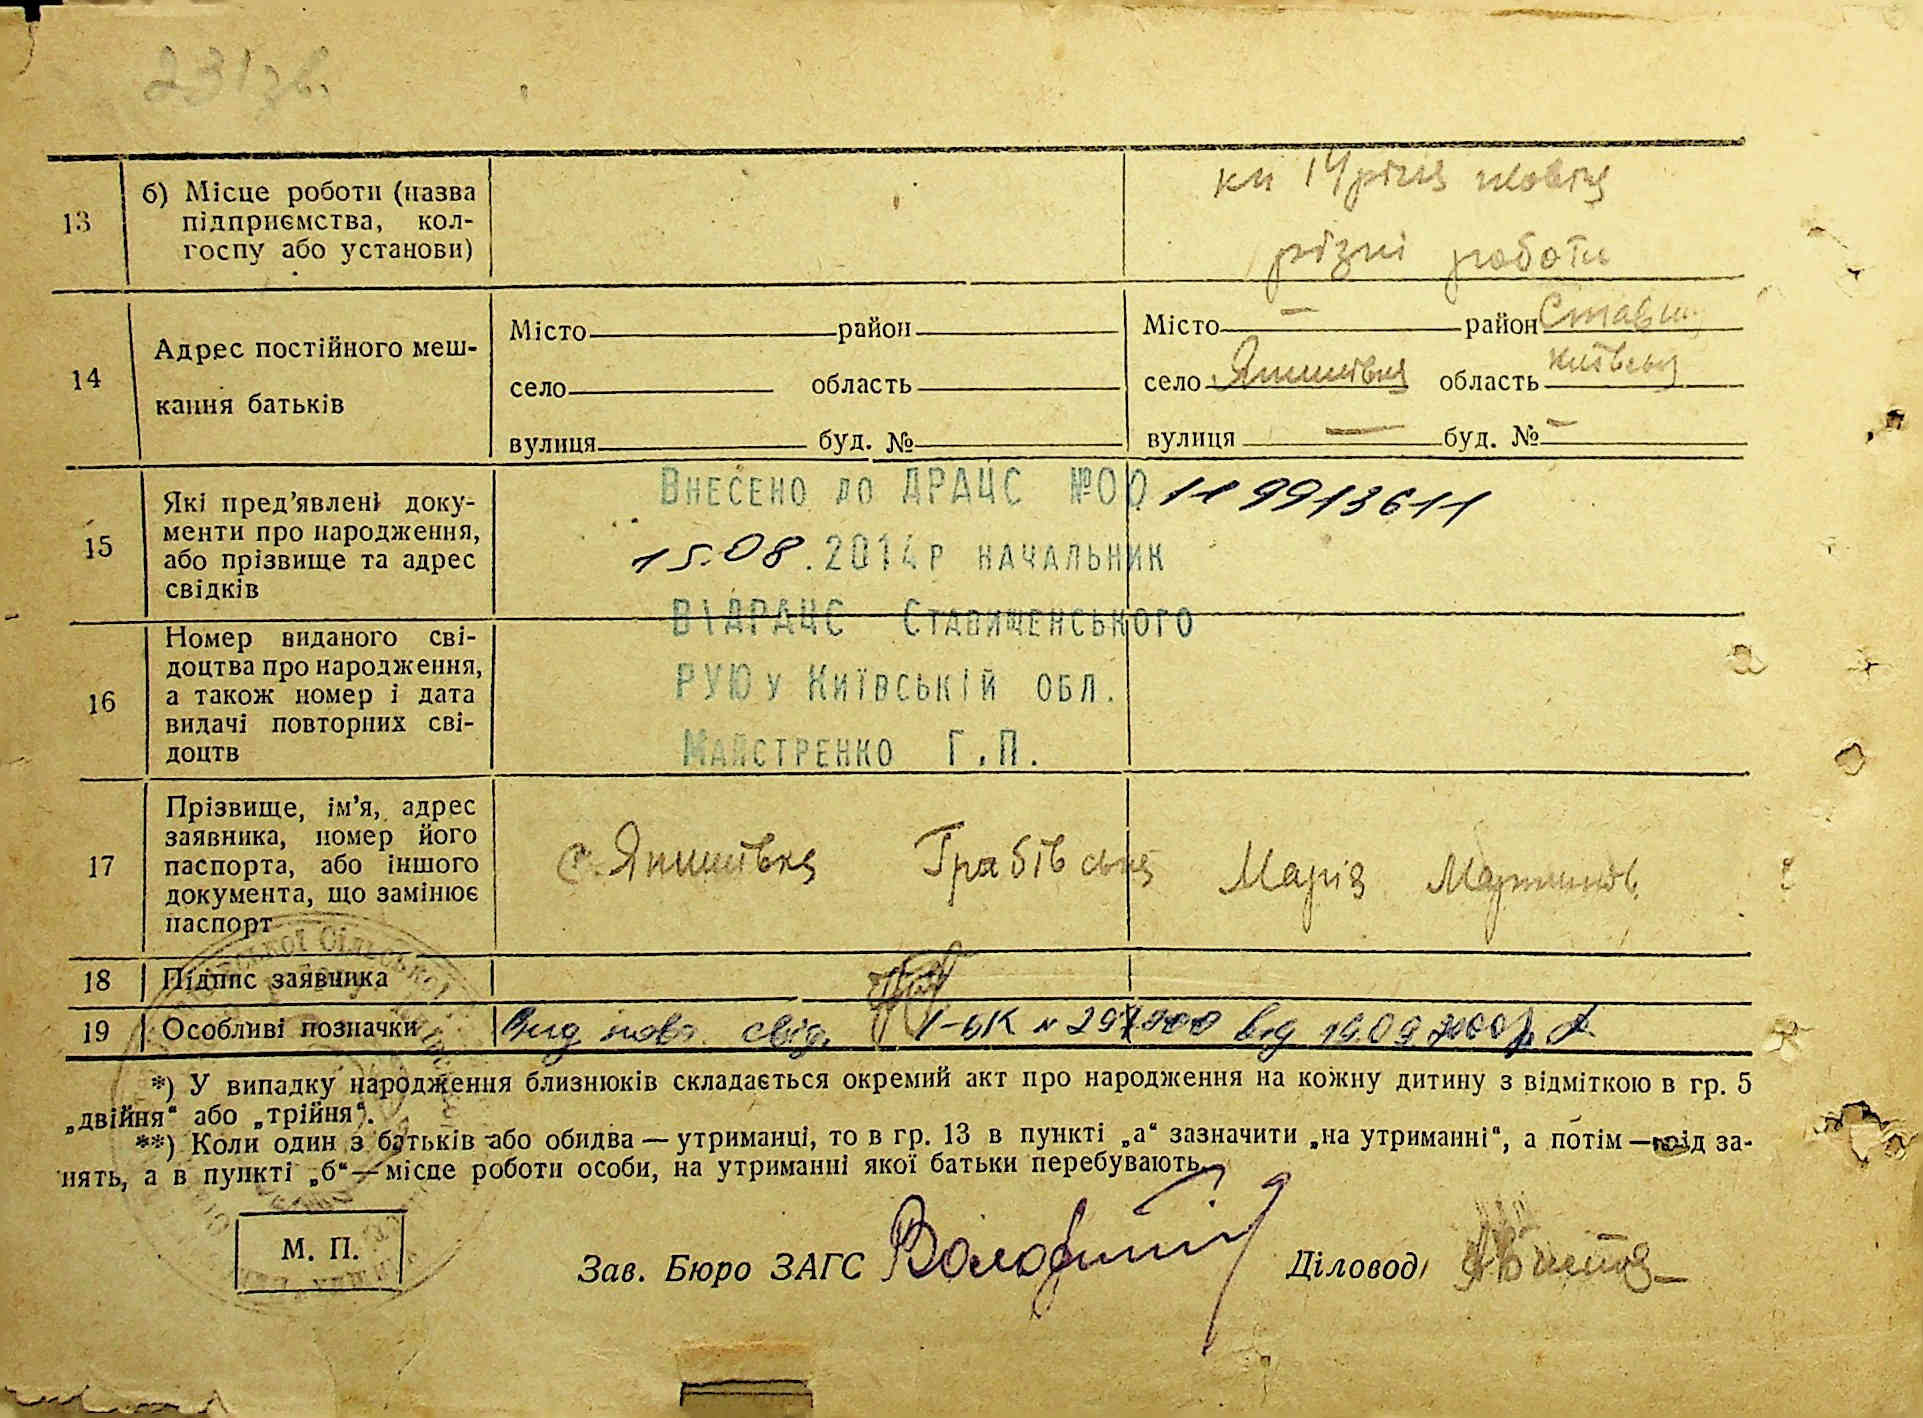 231зв.
13
б) Місце роботи (назва
підприємства, кол-
госпу або установи)
різні роботи
14
Адрес постійного меш-
кання батьків
Місто район
село область
вулиця буд. №
Місто — район Ставищ
село Янишівка область Київськ
вулиця — буд. № —
15
Які пред'явлені доку-
менти про народження,
або прізвище та адрес
свідків
Внесено до ДРАЦС №00 119913611
15.08.2014р начальник
ВІДРАЦС Ставищенського
РУЮ у Київській обл.
Майстренко Г.П.
16
Номер виданого сві-
доцтва про народження,
а також номер і дата
видачі повторних сві-
доцтв
17
Прізвище, ім'я, адрес
заявника, номер його
паспорта, або іншого
документа, що замінює
паспорт
с. Янишівка Грабівська Марія
18
Підпис заявника
19
Особливі позначки
Вид повт. свід.
*) У випадку народження близнюків складається окремий акт про народження на кожну дитину з відміткою в гр. 5
„двійня“ або „трійня“.
**) Коли один з батьків або обидва — утриманці, то в гр. 13 в пункті „а“ зазначити „на утриманні“, а потім — рід за-
нять, а в пункті „б“ — місце роботи особи, на утриманні якої батьки перебувають.
М. П.
Зав. Бюро ЗАГС
Діловод